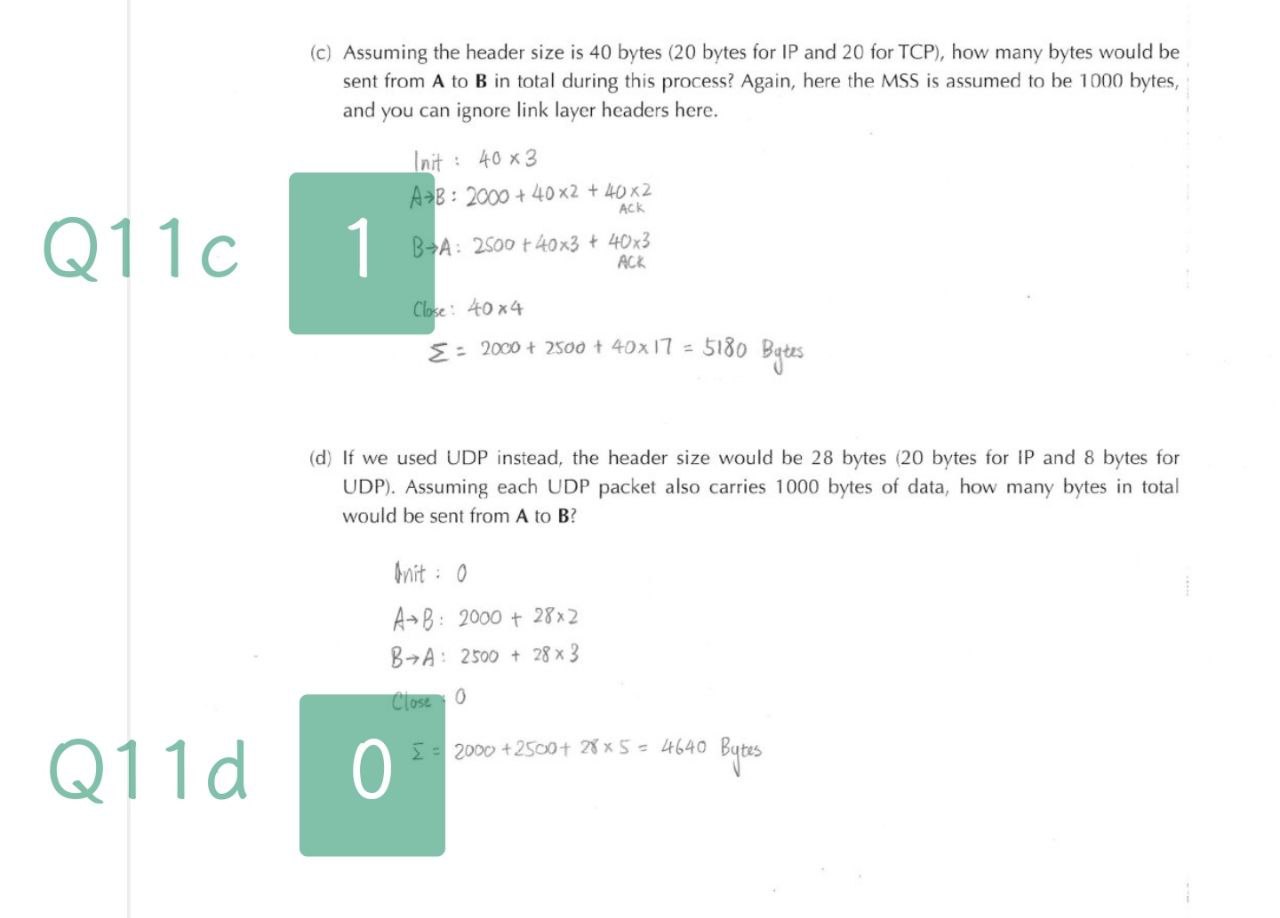 (c) Assuming the header size is 40 bytes (20 bytes for IP and 20 for TCP), how many bytes would be
sent from A to B in total during this process? Again, here the MSS is assumed to be 1000 bytes,
and you can ignore link layer headers here.
Init : 40 × 3
A→B : 2000 + 40×2 + 40×2
ACK
Q11c
1
B→A : 2500 + 40×3 + 40×3
ACK
Close : 40×4
Σ = 2000 + 2500 + 40×17 = 5180 Bytes
(d) If we used UDP instead, the header size would be 28 bytes (20 bytes for IP and 8 bytes for
UDP). Assuming each UDP packet also carries 1000 bytes of data, how many bytes in total
would be sent from A to B?
Init : 0
A→B : 2000 + 28×2
B→A : 2500 + 28×3
Close : 0
Q11d
0
Σ = 2000 + 2500 + 28×5 = 4640 Bytes